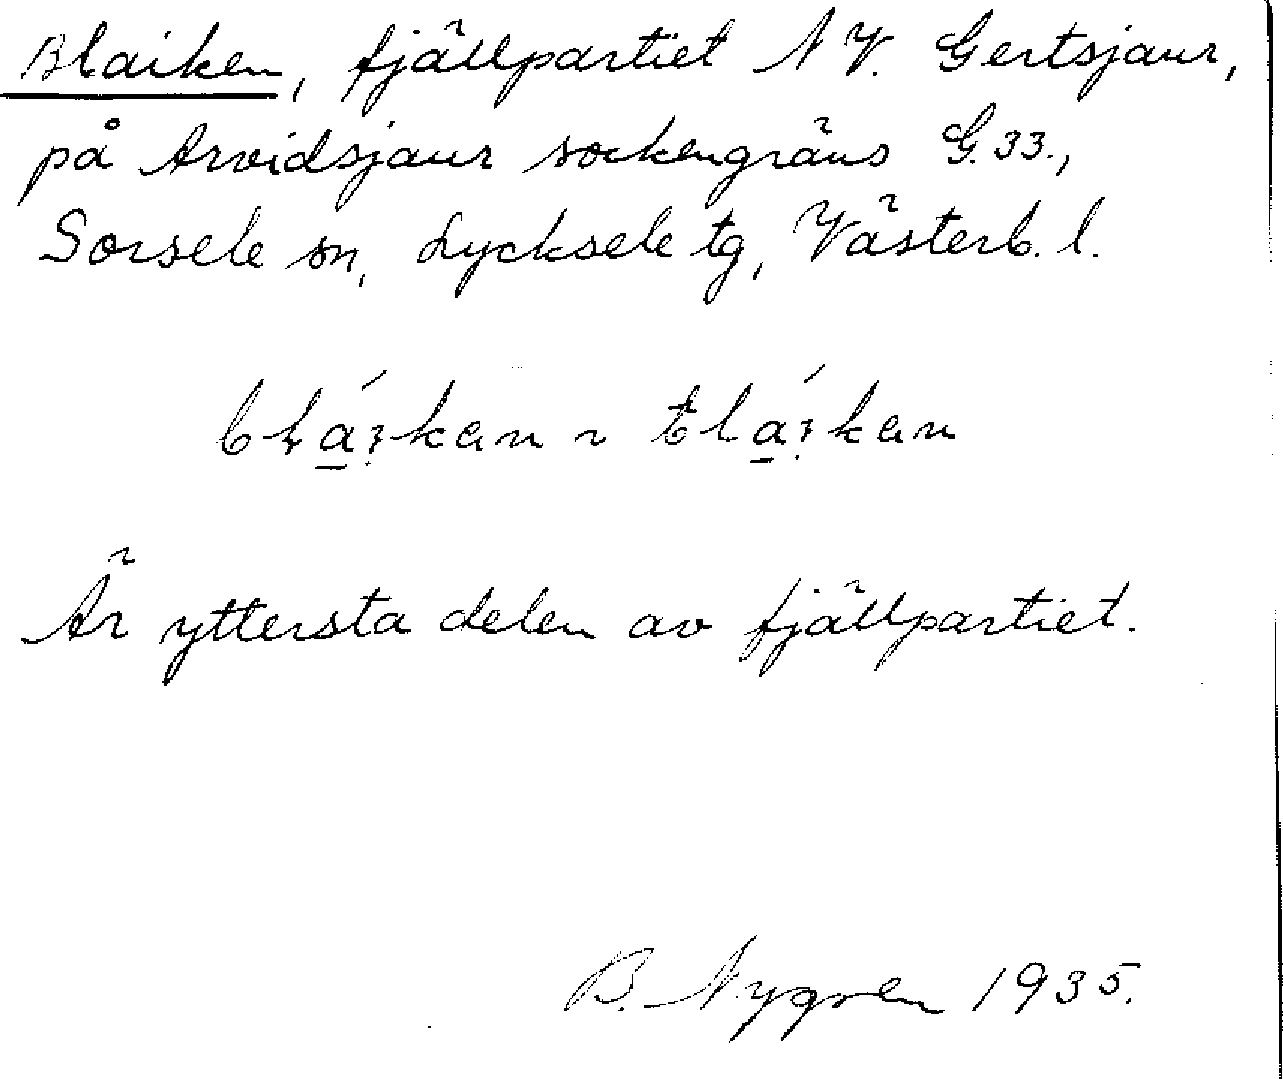 Blaiken, fjällpartiet N V. Gertsjaur,
på Arvidsjaur sockengräns G. 33.,
Sorsele sn, Lycksele tg, Västerb. l.
Är yttersta delen av fjällpartiet.
B. Nygren 1935.